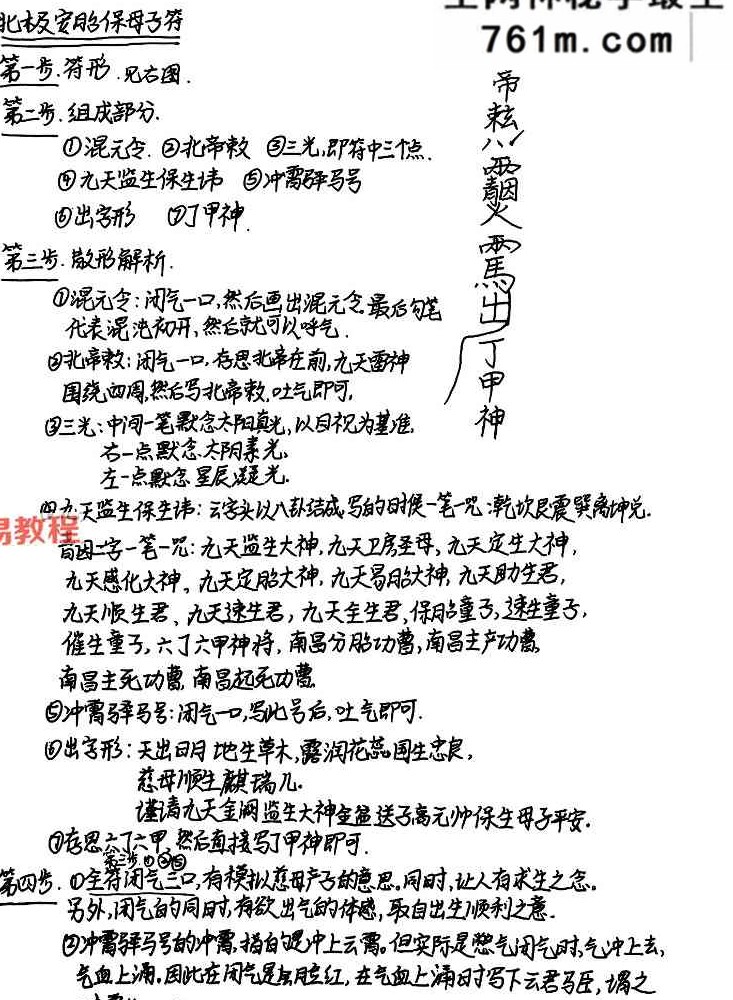 761m.com
北极安胎保母子符
第一步.符形.见右图.
第二步.组成部分.
①混元令.②北帝敕 ③三光,即符中三个点.
④九天监生保生讳 ⑤冲霄驿马号
⑥出字形 ⑦丁甲神.
第三步.散形解析.
①混元令:闭气一口,然后画出混元令.最后勾笔
代表混沌初开,然后就可以呼气.
②北帝敕:闭气一口,存思北帝在前,九天雷神
围绕四周,然后写北帝敕,吐气即可.
③三光:中间一笔默念太阳真光,以目视为基准.
右一点默念太阴素光,
左一点默念星辰凝光.
四九天监生保生讳:云字头以八卦结成,写的时候一笔一咒:乾坎艮震巽离坤兑.
二字一笔一咒:九天监生大神,九天卫房圣母,九天定生大神,
九天感化大神、九天定胎大神,九天易胎大神,九天助生君,
九天顺生君、九天速生君,九天全生君,保胎童子,速生童子,
催生童子,六丁六甲神将,南昌分胎功曹,南昌主产功曹,
南昌主死功曹,南昌起死功曹.
⑤冲霄驿马号:闭气一口,写此号后,吐气即可.
⑥出字形:天出日月地生草木,露润花蕊国生忠良,
慈母顺生麒瑞儿.
谨请九天金阙监生大神金盆送子高元帅保生母子平安.
⑦存思六丁六甲,然后直接写丁甲神即可.
第三步①②⑤
第四步.①全符闭气三口,有模拟慈母产子的意思。同时,让人有求生之念。
另外,闭气的同时,有欲出气的体感,取自出生顺利之意.
②冲霄驿马号的冲霄,指的是冲上云霄。但实际是憋气闭气时,气冲上去,
气血上涌.因此在闭气是脸红,在气血上涌时写下云君马臣,谓之
帝
敕
霄
馬
出
丁
甲
神
易教程